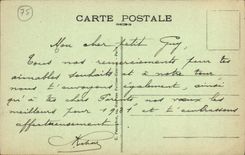 75
CARTE POSTALE
Mon cher petit Guy,
Tous nos remerciements pour tes
aimables souhaits et à notre tour
nous t'envoyons également, ainsi
qu'à tes chers Parents, nos vœux les
meilleurs pour 1921 et t'embrassons
affectueusement.